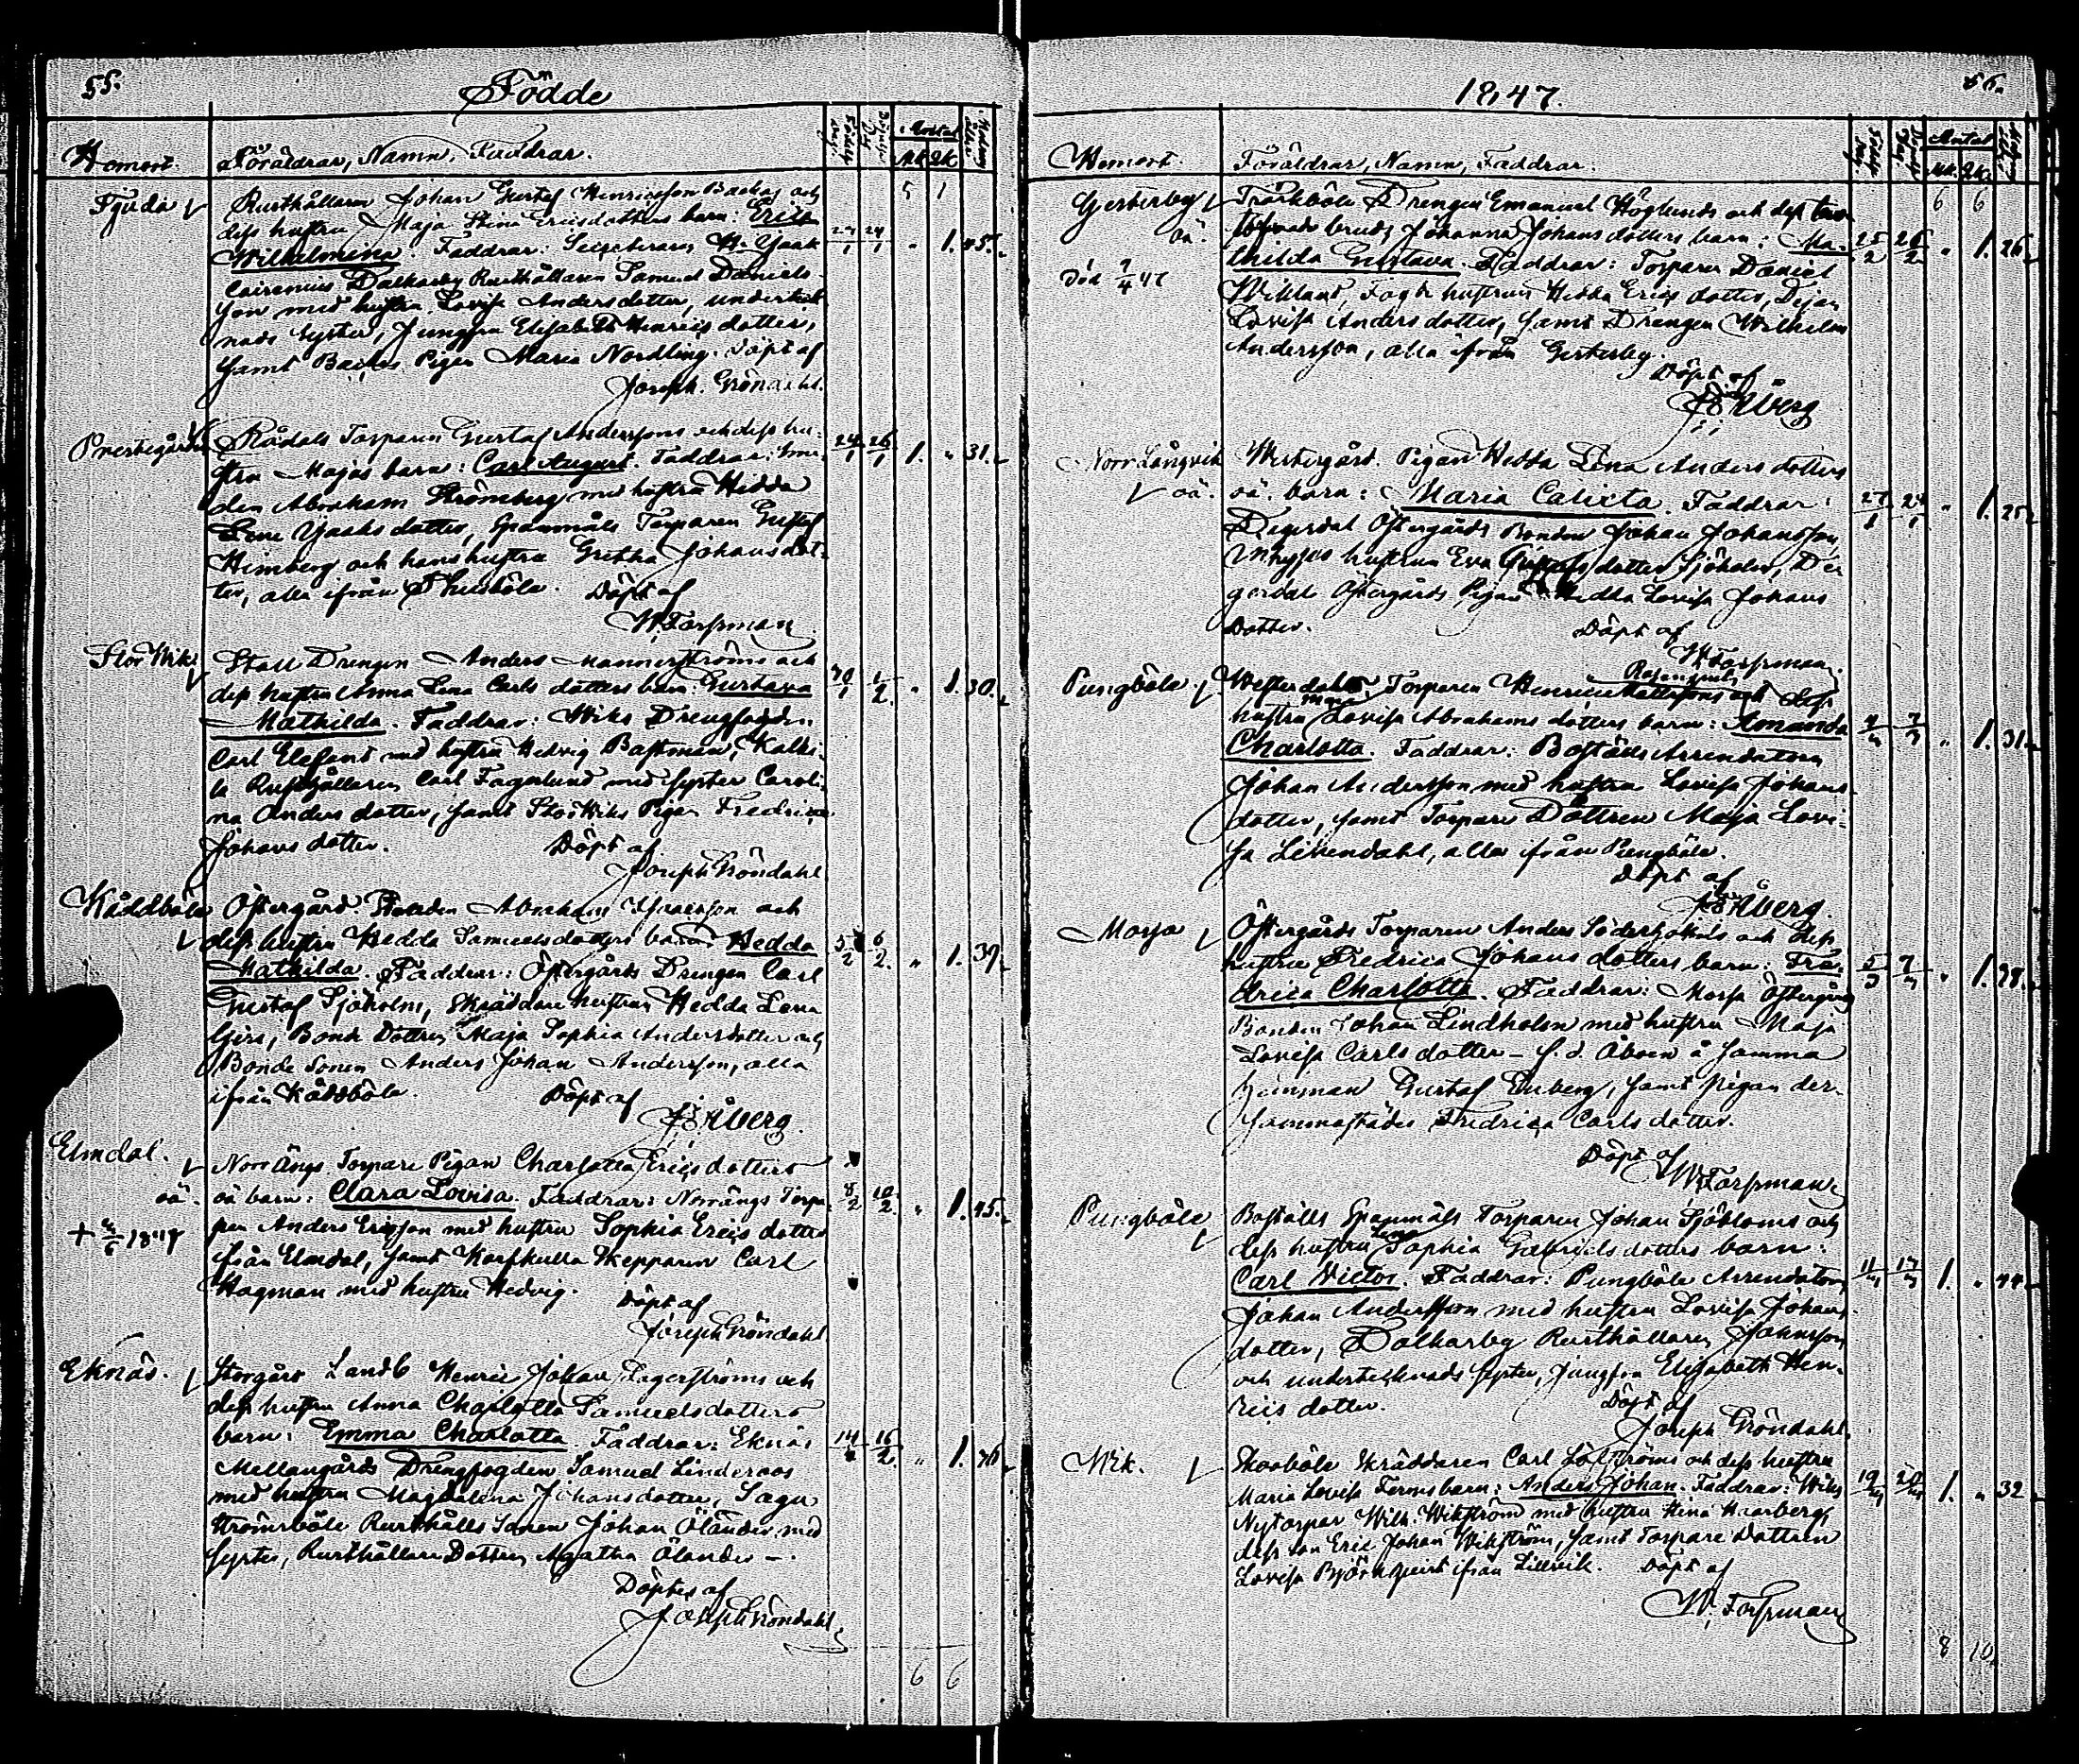 55.
Födde
Hemort. Föräldrar, Namn, Faddrar.
Födelse Dag. Döpelse Dag Antal Mk. Qk.
5 1
Tjuda Rusthållaren Johan Gustaf Henricsson Backas och
dess hustru Maja Stina Ericsdotters barn: Erica
Wilhelmina. Faddrar: H. Isaak 24/1 1. 45.
Dalkarby Rusthållaren Samuel Daniels-
son med hustru Lovisa Andersdotter, underteck-
nads Syster, Jungfru Elisabeth Henricsdotter,
samt Backas Pigan Maria Nordling. Döpt af
Joseph Gröndahl.
Prestegården Torparen Gustaf Anderssons och dess hu-
stru Majas barn: Carl August. Faddrar: 24/1 26/1 1. „ 31.
den Abraham Strömberg med hustru Hedda
Lena Isaks dotter, Spannmåls Torparen Gustaf
Himberg och hans hustru Gretha Johansdot-
ter, alla ifrån Döpt af
W. Forssman
Stor Wik Stall Drengen Anders Mannerströms och
dess hustru Anna Lena Carls dotters barn: Gustava 30/1 1/2. „ 1. 30.
Mathilda. Faddrar: Wiks Drengfogden
Carl Elefant med hustru Hedvig Bastman, Kalks-
la Rusthållaren Carl Fagerlund med syster Caroli-
na Anders dotter, samt Stor Wiks Pigan Fredrica
Johans dotter. Döpt af
Joseph Gröndahl
Kåddböle Östergård. Abraham och
dess hustru Hedda Samuelsdotters barn: Hedda 5/2 6/2. „ 1. 39.
Mathilda. Faddrar: Östergårds Drengen Carl
Gustaf Sjöholm, Skräddare hustrun Hedda Lena
Bonde Dottren Maja Sophia Andersdotter och
Bonde Sonen Anders Johan Andersson, alla
ifrån Kåddböle. Döpt af
Åberg.
Elmdal. Norrängs Torpare Pigan Charlotta Ericsdotters
oä. oä barn: Clara Lovisa. Faddrar: Norrängs Torpa- 8/2 10/2. „ 1. 45.
ren Anders Ericsson med hustru Sophia Erics dotter
ifrån Elmdal, samt Skepparen Carl
Hagman med hustru Hedvig. Döpt af
Joseph Gröndahl
Eknäs. Storgård Landb Henric Johan Lagerströms och
dess hustru Anna Charlotta Samuelsdotters
barn: Emma Charlotta. Faddrar: Eknäs 14/2 16/2 „ 1.
Mellangårds Drengfogden Samuel Linderoos
med hustru Magdalena Johansdotter,
Strömsböle Rusthålls Sonen Johan Ölander med
Syster, Rusthållare Dottren Agatha Ölander —.
Döptes af
Joseph Gröndahl
6 6
1847.
56.
Hemort. Föräldrar, Namn, Faddrar.
Födelse Dag Döpelse Dag Antal Mk. Qk.
6 6
Gesterby Träskböle Drengen Emanuel Höglunds och dess
oä. bruds Johanna Johans dotters barn: Ma- 25/2 26/2 „ 1. 26
Död 9/4 47 thilda Gustava. Faddrar: Torparen Daniel
Wiklund, hustrun Hedda Erics dotter, Pijan
Lovisa Anders dotter, samt Drengen Wilhelm
Andersson, alla ifrån Gesterby.
Döpt af
Åberg
Norr Långvik Westergård. Pigan Hedda Lena Anders dotters
oä. oä. barn: Maria Calixta. Faddrar: „ 1. 25
Degerdal Östergårds Bonden Johan Johansson,
hustrun Eva dotter Sjöholm, De-
gerdal Östergårds Pigan Hedda Lovisa Johans
Dotter. Döpt af
W. Forssman.
Pungböle Westerdahls Torparen Henric Mattssons och dess
hustru Lovisa Abrahams dotters barn: Amanda „ 1. 31
Charlotta. Faddrar: Boställs Arrendatorn
Johan Andersson med hustru Lovisa Johans-
dotter, samt Torpare Dottren Maja Lovi-
sa Liljendahl, alla ifrån Pungböle.
Döpt af
Åberg.
Morsa Östergårds Torparen Anders Söderholms och dess
hustru Fredrica Johans dotters barn: Fre- 5/3 7/3 „ 1.
drica Charlotta. Faddrar: Morsa Östergårds
Bonden Johan Lindholm med hustru Maja
Lovisa Carls dotter — f. d. Åboen å samma
hemman Gustaf Enberg, samt Pigan der-
sammastädes Fredrica Carls dotter.
Döpt af
W. Forssman
Pungböle Boställs Spannmåls Torparen Johan Sjöbloms och
dess hustru Lena Sophia Gabriels dotters barn:
Carl Victor. Faddrar: Pungböle Arrendatorn 11/3 14/3 1. „ 44
Johan Andersson med hustru Lovisa Johans
dotter, Dalkarby Rusthållaren Johnsson
och undertecknads syster, Jungfru Elisabeth Hen-
rics dotter. Döpt af
Joseph Gröndahl.
Wik. Skogböle Skräddaren Carl Löfströms och dess hustru
Maria Lovisa Ferms barn: Anders Johan. Faddrar: Wiks 19/3 20/3 1. „ 32
Nytorpar Wilh. Wikström med hustru Stina
dess son Eric Johan Wikström, samt Torpare Dottren
Lovisa Björkqvist ifrån Lillvik. Döpt af
W. Forssman
8 10